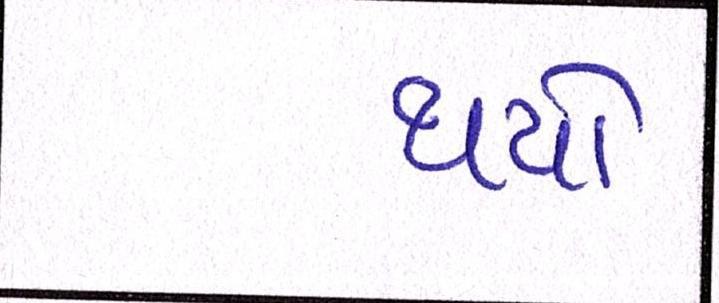 થયો